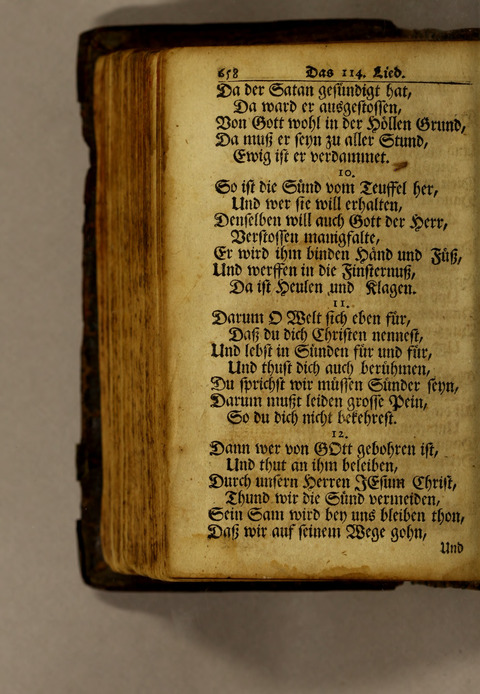 658 Das 114. Lied.
Da der Satan gesündigt hat,
Da ward er ausgestossen,
Von Gott wohl in der Höllen Grund,
Da muß er seyn zu aller Stund,
Ewig ist er verdammet.
10.
So ist die Sünd vom Teuffel her,
Und wer sie will erhalten,
Denselben will auch Gott der Herr,
Verstossen manigfalte,
Er wird ihm binden Händ und Füß,
Und werffen in die Finsternuß,
Da ist Heulen und Klagen.
11.
Darum O Welt sich eben für,
Daß du dich Christen nennest,
Und lebst in Sünden für und für,
Und thust dich auch berühmen,
Du sprichst wir müssen Sünder seyn,
Darum mußt leiden grosse Pein,
So du dich nicht bekehrest.
12.
Dann wer von GOtt gebohren ist,
Und thut an ihm beleiben,
Durch unsern Herren JEsum Christ,
Thund wir die Sünd vermeiden,
Sein Sam wird bey uns bleiben thon,
Daß wir auf seinem Wege gohn,
Und